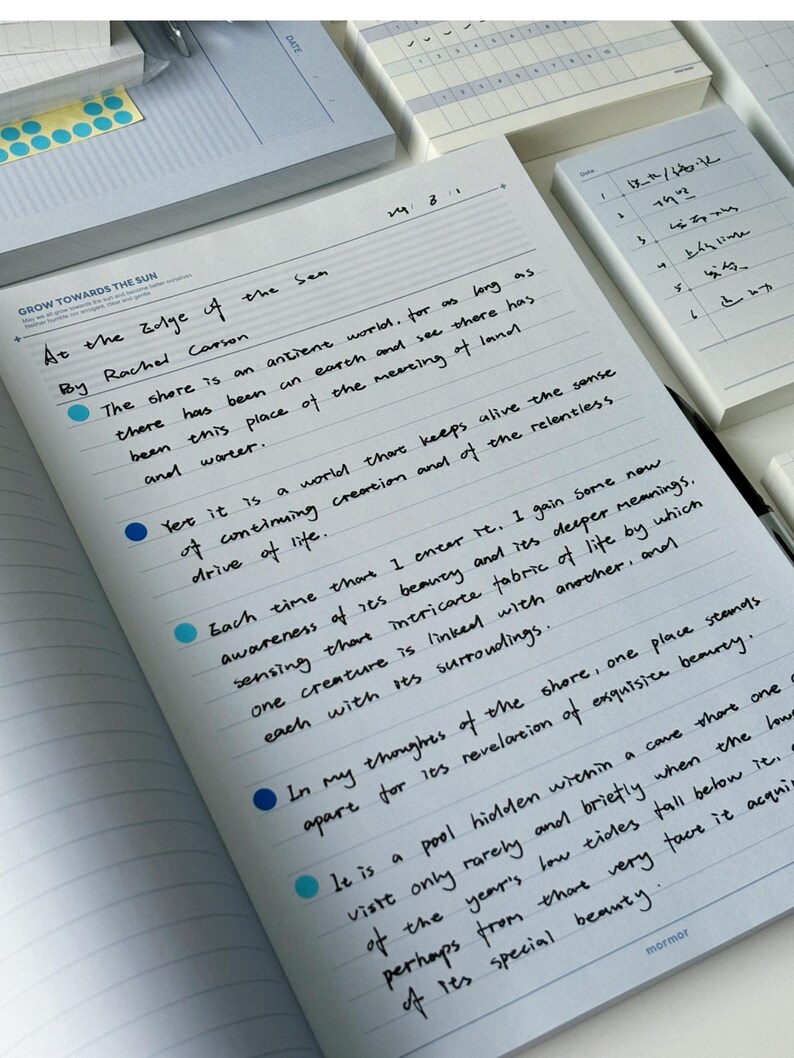 DATE.
1 2
1 2 3 4 5 6 7 8 9 10
1 2 3 4 5 6 7 8 9 10
mormor
Date.
1
2
3
4
5
6
GROW TOWARDS THE SUN
May we all grow towards the sun and become better ourselves
Neither humble nor arrogant, clear and gentle
At the Edge of the Sea
By Rachel Carson
The shore is an ancient world. for as long as
there has been an earth and sea there has
been this place of the meeting of land
and water.
Yet it is a world that keeps alive the sense
of continuing creation and of the relentless
drive of life.
Each time that I enter it, I gain some new
awareness of its beauty and its deeper meanings,
sensing that intricate fabric of life by which
one creature is linked with another, and
each with its surroudings.
In my thoughts of the shore, one place stands
apart for its revelation of exquisite beauty.
It is a pool hidden within a cave that one
visit only rarely and briefly when the
of the year's low tides fall below it,
perhaps from that very fact it
of its special beauty.
mormor